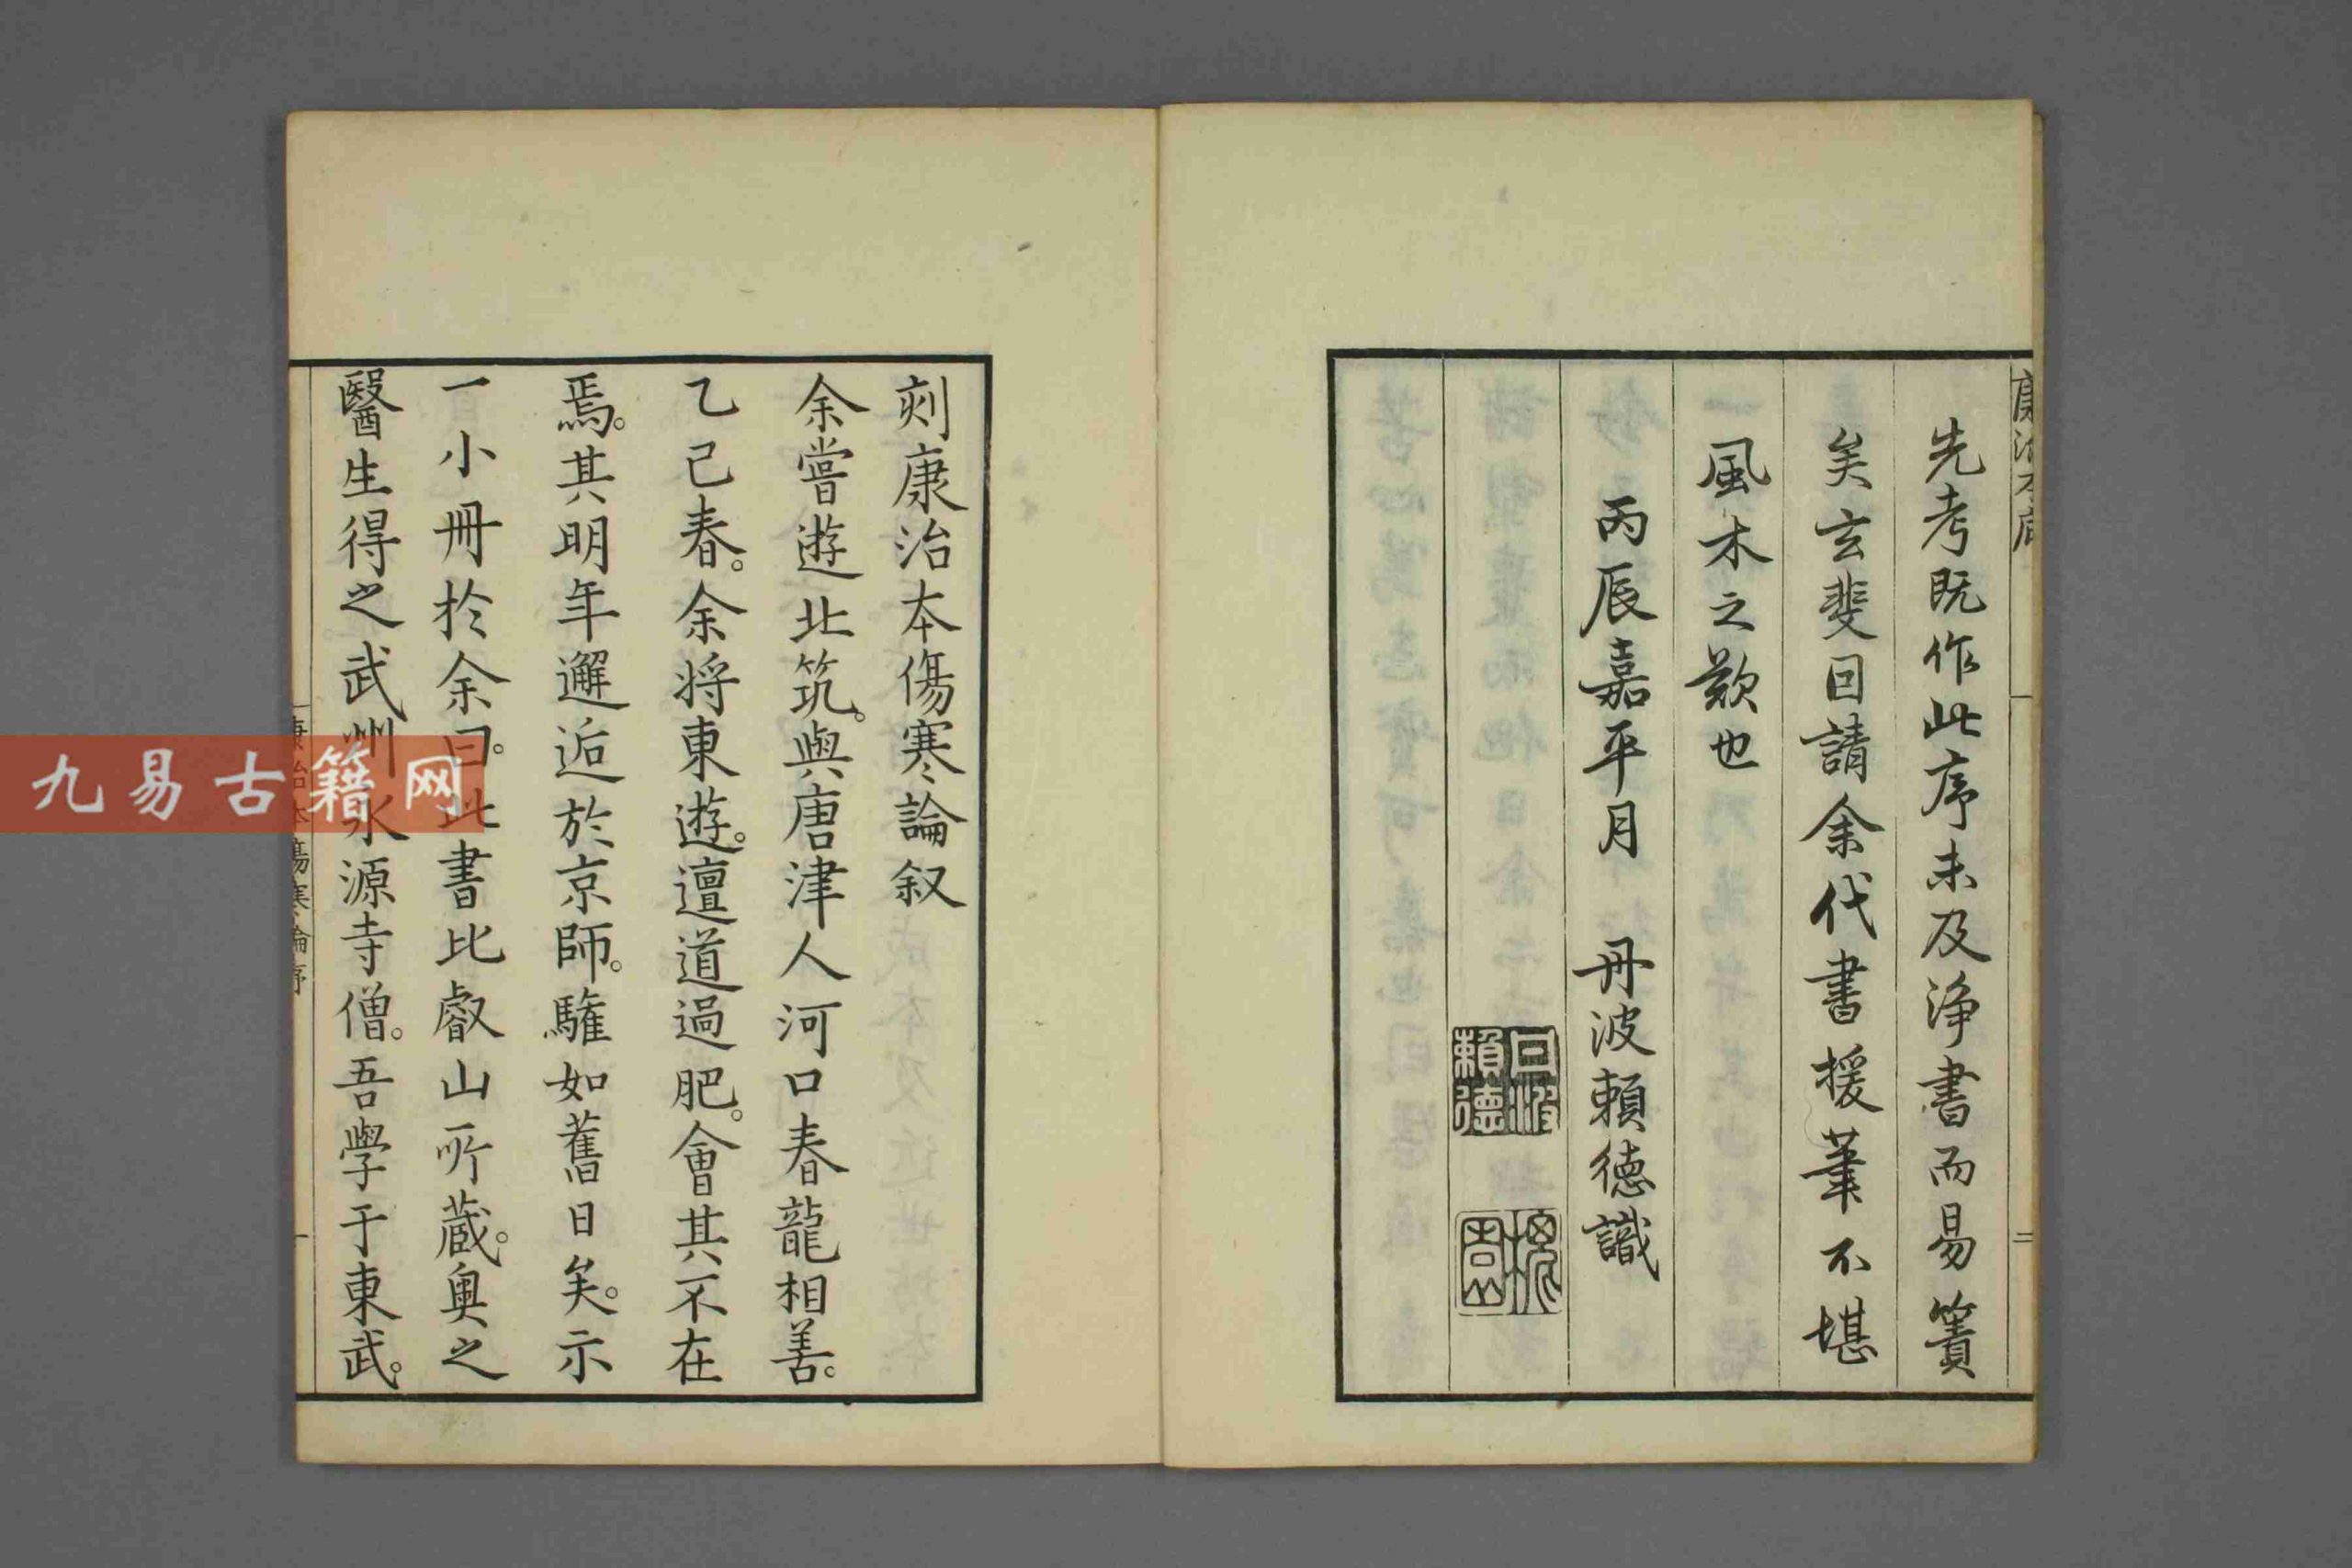 康治本序
先考既作此序未及淨書而易簀
矣玄斐回請余代書援筆不堪
風木之歎也
丙辰嘉平月　丹波賴德識
賴德
槐園
二
刻康治本傷寒論叙
余嘗遊北筑。與唐津人河口春龍相善。
乙己春。余将東遊。邅道過肥。會其不在
焉。其明年邂逅於京師。驩如舊日矣。示
一小冊於余曰。此書比叡山所蔵。奥之
醫生得之武州永源寺僧。吾學于東武。
康治本傷寒論序
一
九易古籍网